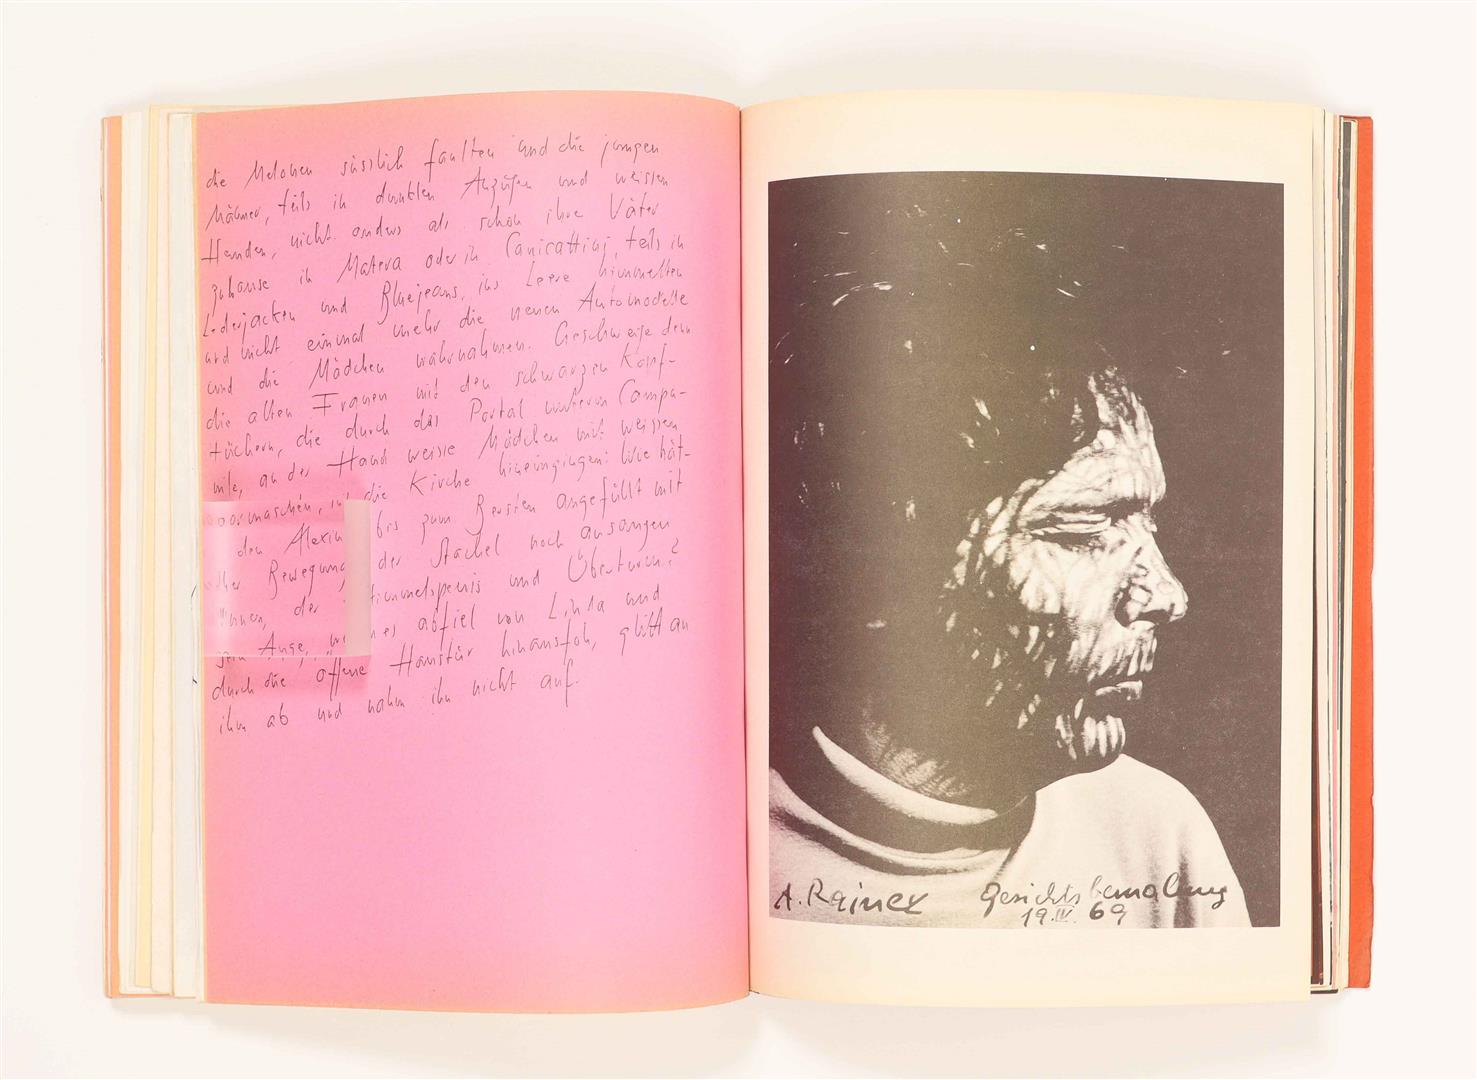 die Melonen süsslich faulten und die jungen
Männer, teils in dunklen Anzügen und weissen
Hemden, nicht anders als schon ihre Väter
zuhause in Matera oder in Canicattini teils in
Lederjacken und Bluejeans, ins Leere himmelten
und nicht einmal mehr die neuen Automodelle
und die Mädchen wahrnahmen. Geschweige denn
die alten Frauen mit den schwarzen Kopf-
tüchern, die durch das Portal unterm Campa-
nile, an der Hand weisse Mädchen mit weissen
in die Kirche hineingingen: Wie hät-
den Alexin bis zum Bersten angefüllt mit
Bewegung der Stachel noch ansangen
können, der Himmelspenis und Überturm?
Sein Auge, abfiel von Linsa und
durch die offene Haustür hinausfoh, glitt an
ihm ab und nahm ihn nicht auf.
A. Rainer Gesichtsbemalung
19.IV. 69